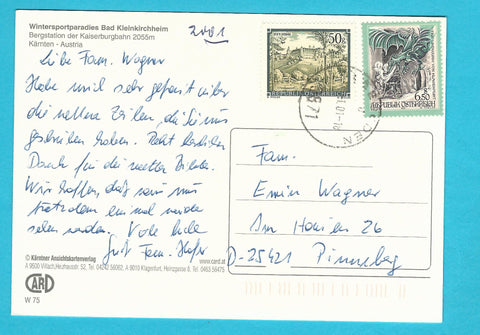 Wintersportparadies Bad Kleinkirchheim
Bergstation der Kaiserburgbahn 2055m
Kärnten - Austria
2001
Liebe Fam. Wagner
Habe mich sehr gefreut über
die netten Zeilen, die Sie uns
geschrieben haben. Recht herzlichen
Dank für die netten Bilder.
Wir hoffen, daß wir uns
trotzdem einmal wieder
sehen werden. Viele liebe
Grüße Fam.
50
REPUBLIK ÖSTERREICH
6,50
REPUBLIK ÖSTERREICH
Fam.
Erwin Wagner
Am 26
D-25421 Pinneberg
© Kärntner Ansichtskartenverlag
A 9500 Villach, 52, Tel. 04242 56062, A 9010 Klagenfurt, Heinzgasse 8, Tel. 0463 56475
www.card.at
CARD
W 75